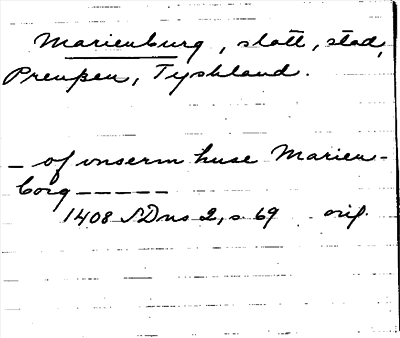 Marienburg, slott, stad,
Preuβen, Tyskland.
– of vnserm huse Marien-
borg – – – – –
1408 SDns 2, s 69 orig.